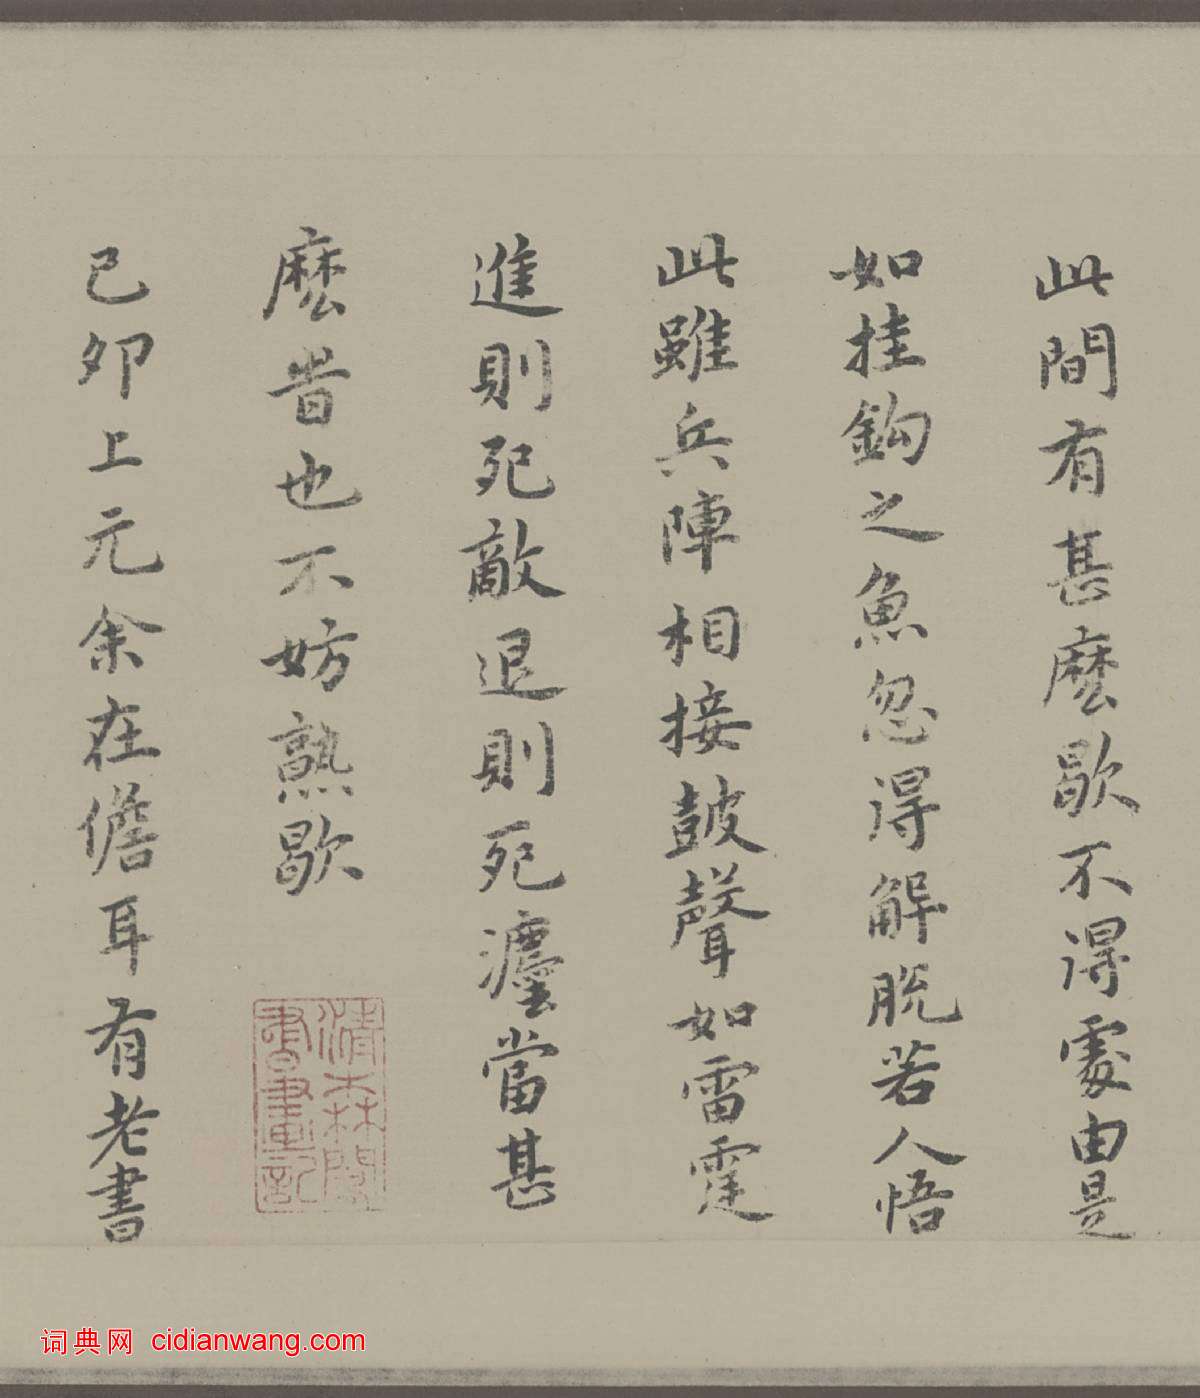 此間有甚麽歇不得處由是
如挂鈎之魚忽得解脱若人悟
此雖兵陣相接鼓聲如雷霆
進則死敵退則死瀍當甚
麽旹也不妨熟歇
己卯上元余在儋耳有老書
清森閣
書畫記
词典网 cidianwang.com